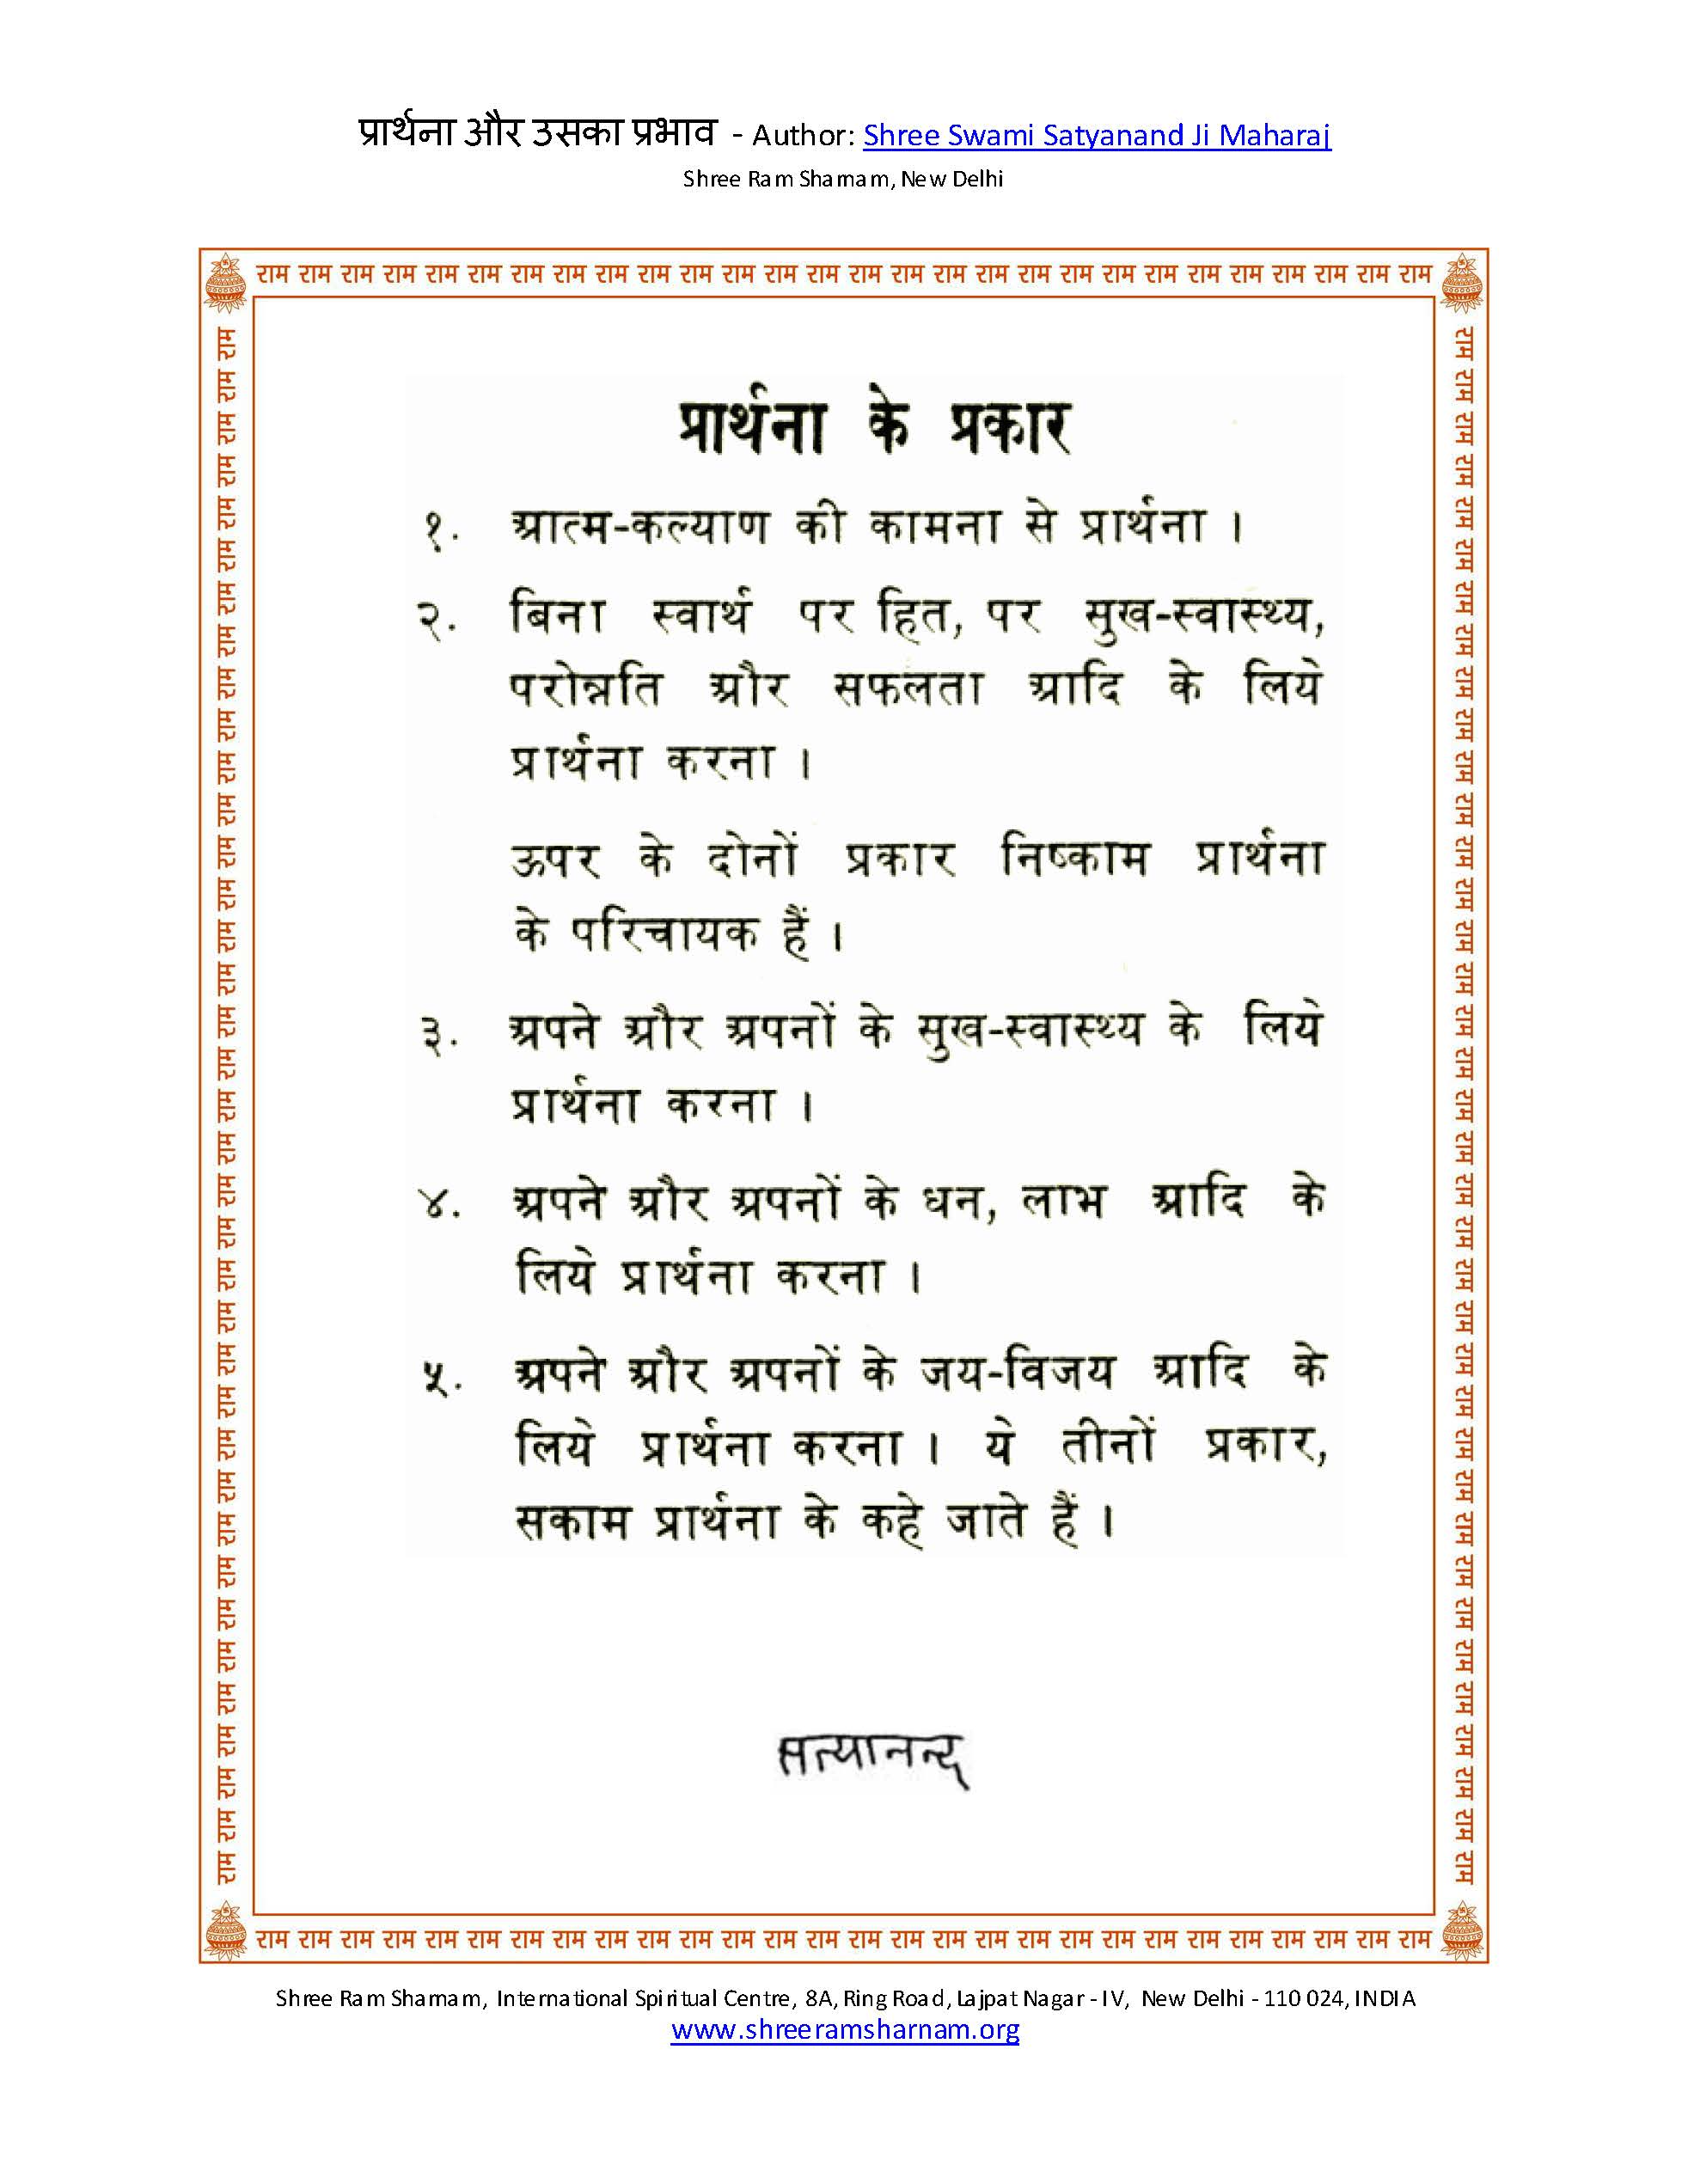 प्रार्थना और उसका प्रभाव - Author: Shree Swami Satyanand Ji Maharaj
Shree Ram Sharnam, New Delhi
राम राम राम राम राम राम राम राम राम राम राम राम राम राम राम राम राम राम राम राम राम राम राम राम राम राम राम राम
प्रार्थना के प्रकार
१. आत्म-कल्याण की कामना से प्रार्थना ।
२. बिना स्वार्थ पर हित, पर सुख-स्वास्थ्य,
परोन्नति और सफलता आदि के लिये
प्रार्थना करना ।
ऊपर के दोनों प्रकार निष्काम प्रार्थना
के परिचायक हैं ।
३. अपने और अपनों के सुख-स्वास्थ्य के लिये
प्रार्थना करना ।
४. अपने और अपनों के धन, लाभ आदि के
लिये प्रार्थना करना ।
५. अपने और अपनों के जय-विजय आदि के
लिये प्रार्थना करना । ये तीनों प्रकार,
सकाम प्रार्थना के कहे जाते हैं ।
सत्यानन्द
राम राम राम राम राम राम राम राम राम राम राम राम राम राम राम राम राम राम राम राम राम राम राम राम राम राम राम राम
राम राम राम राम राम राम राम राम राम राम राम राम राम राम राम राम राम राम राम राम राम राम राम राम राम राम राम राम राम राम राम राम राम राम राम राम राम
राम राम राम राम राम राम राम राम राम राम राम राम राम राम राम राम राम राम राम राम राम राम राम राम राम राम राम राम राम राम राम राम राम राम राम राम राम
Shree Ram Sharnam, International Spiritual Centre, 8A, Ring Road, Lajpat Nagar - IV, New Delhi - 110 024, INDIA
www.shreeramsharnam.org